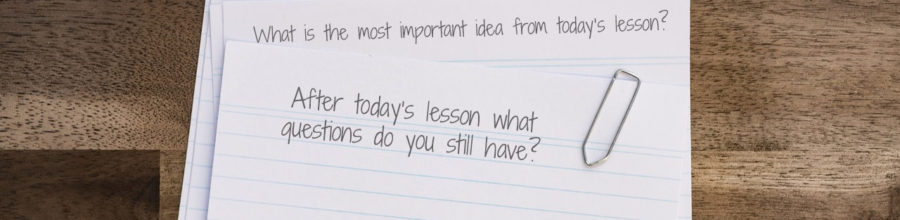 What is the most important idea from today's lesson?
After today's lesson what
questions do you still have?